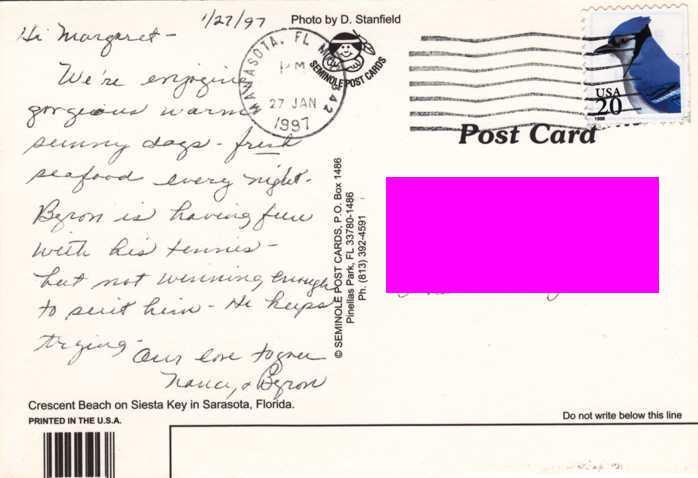 1/27/97
Photo by D. Stanfield
Hi Margaret -
We're enjoying
gorgeous warm
sunny days - fresh
seafood every night.
Byron is having fun
with his tennis -
but not winning enough
to suit him - He keeps
trying -
Our love to you
Nancy & Byron
Crescent Beach on Siesta Key in Sarasota, Florida.
PRINTED IN THE U.S.A.
MANASOTA, FL
PM
27 JAN
1997
342
SEMINOLE POST CARDS
USA
20
1996
Post Card
© SEMINOLE POST CARDS, P.O. Box 1486
Pinellas Park, FL 33780-1486
Ph. (813) 392-4591
Do not write below this line